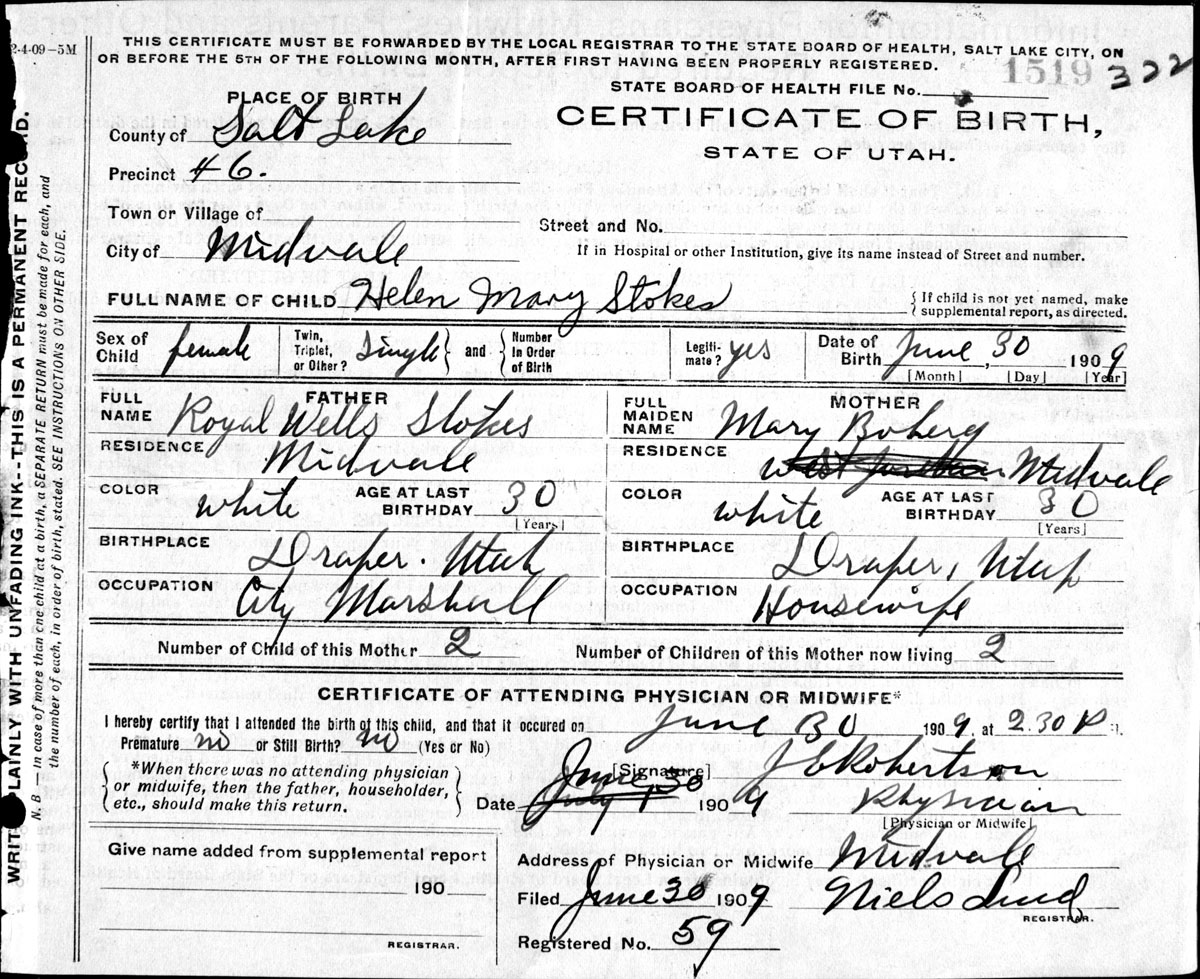 2-4-09-5M
THIS CERTIFICATE MUST BE FORWARDED BY THE LOCAL REGISTRAR TO THE STATE BOARD OF HEALTH, SALT LAKE CITY, ON
OR BEFORE THE 5TH OF THE FOLLOWING MONTH, AFTER FIRST HAVING BEEN PROPERLY REGISTERED.
1519 322
STATE BOARD OF HEALTH FILE No.
PLACE OF BIRTH
CERTIFICATE OF BIRTH,
STATE OF UTAH.
County of Salt Lake
Precinct #6.
Town or Village of
Street and No.
City of Midvale
If in Hospital or other Institution, give its name instead of Street and number.
FULL NAME OF CHILD Helen Mary Stokes
{If child is not yet named, make
supplemental report, as directed.
Sex of Child female Twin, Triplet, or Other? Single} and {Number In Order of Birth Legiti-mate? yes Date of Birth June, 30, 1909
[Month] [Day] [Year]
FATHER
FULL NAME Royal Wells Stokes
RESIDENCE Midvale
COLOR white AGE AT LAST BIRTHDAY 30
[Years]
BIRTHPLACE Draper. Utah
OCCUPATION City Marshall
MOTHER
FULL MAIDEN NAME Mary Boberg
RESIDENCE Midvale
COLOR white AGE AT LAST BIRTHDAY 30
[Years]
BIRTHPLACE Draper, Utah
OCCUPATION Housewife
Number of Child of this Mother 2 Number of Children of this Mother now living 2
CERTIFICATE OF ATTENDING PHYSICIAN OR MIDWIFE*
I hereby certify that I attended the birth of this child, and that it occured on June 30 1909, at 2.30 P M.
Premature no or Still Birth? no (Yes or No)
{*When there was no attending physician
or midwife, then the father, householder,
etc., should make this return.}
[Signature] Robertson
June 30
Date July 1 1909 Physician
[Physician or Midwife]
Give name added from supplemental report
190
REGISTRAR.
Address of Physician or Midwife Midvale
Filed June 30 1909 Niels Lind
REGISTRAR.
Registered No. 59
WRITE PLAINLY WITH UNFADING INK--THIS IS A PERMANENT RECORD.
N. B.—In case of more than one child at a birth, a SEPARATE RETURN must be made for each, and
the number of each, in order of birth, stated. SEE INSTRUCTIONS ON OTHER SIDE.